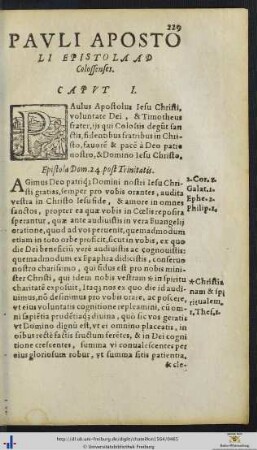 229
PAVLI APOSTO
LI EPISTOLA AD
Colossenses.
CAPVT I.
PAulus Apostolus Iesu Christi,
voluntate Dei, & Timotheus
frater, ijs qui Colossis degūt san
ctis, fidentibus fratribus in Chri-
sto, fauorē & pacē à Deo patre
nostro, & Domino Iesu Christo.
Epistola Dom. 24 post Trinitatis.
AGimus Deo patriq; Domini nostri Iesu Chri-
sti gratias, semper pro vobis orantes, audita
vestra in Christo Iesu fide, & amore in omnes
sanctos, propter ea quæ vobis in Cœlis reposita
sperantur, quæ antè audiuistis in vera Euangelij
oratione, quod ad vos peruenit, quemadmodum
etiam in toto orbe proficit, ficut in vobis, ex quo
die Dei beneficiū verè audiuistis ac cognouistis:
quemadmodum ex Epaphra didicistis, conseruo
nostro charissimo, qui fidus est pro nobis mini-
ster Christi, qui idem nobis vestram * in spiritu
charitatem exposuit, Itaq; nos ex quo die id audi-
uimus, nō desinimus pro vobis orare, ac poscere,
vt eius voluntatis cognitione repleamini, cū om-
ni sapiētia prudētiaq; diuina, quò sic vos geratis
vt Domino dignū est, vt ei omnino placeatis, in
oībus rectè factis fructum ferētes, & in Dei cogni
tione crescentes, summa vi conualescentes per
eius gloriosum robur, vt summa sitis patientia,
& cle-
2. Cor. 2.
Galat. 1.
Ephe. 1.
Philip. 1.
* Christia
nam & spi
ritualem,
1, Thes, 1.
http://dl.ub.uni-freiburg.de/diglit/
© Universitätsbibliothek Freiburg